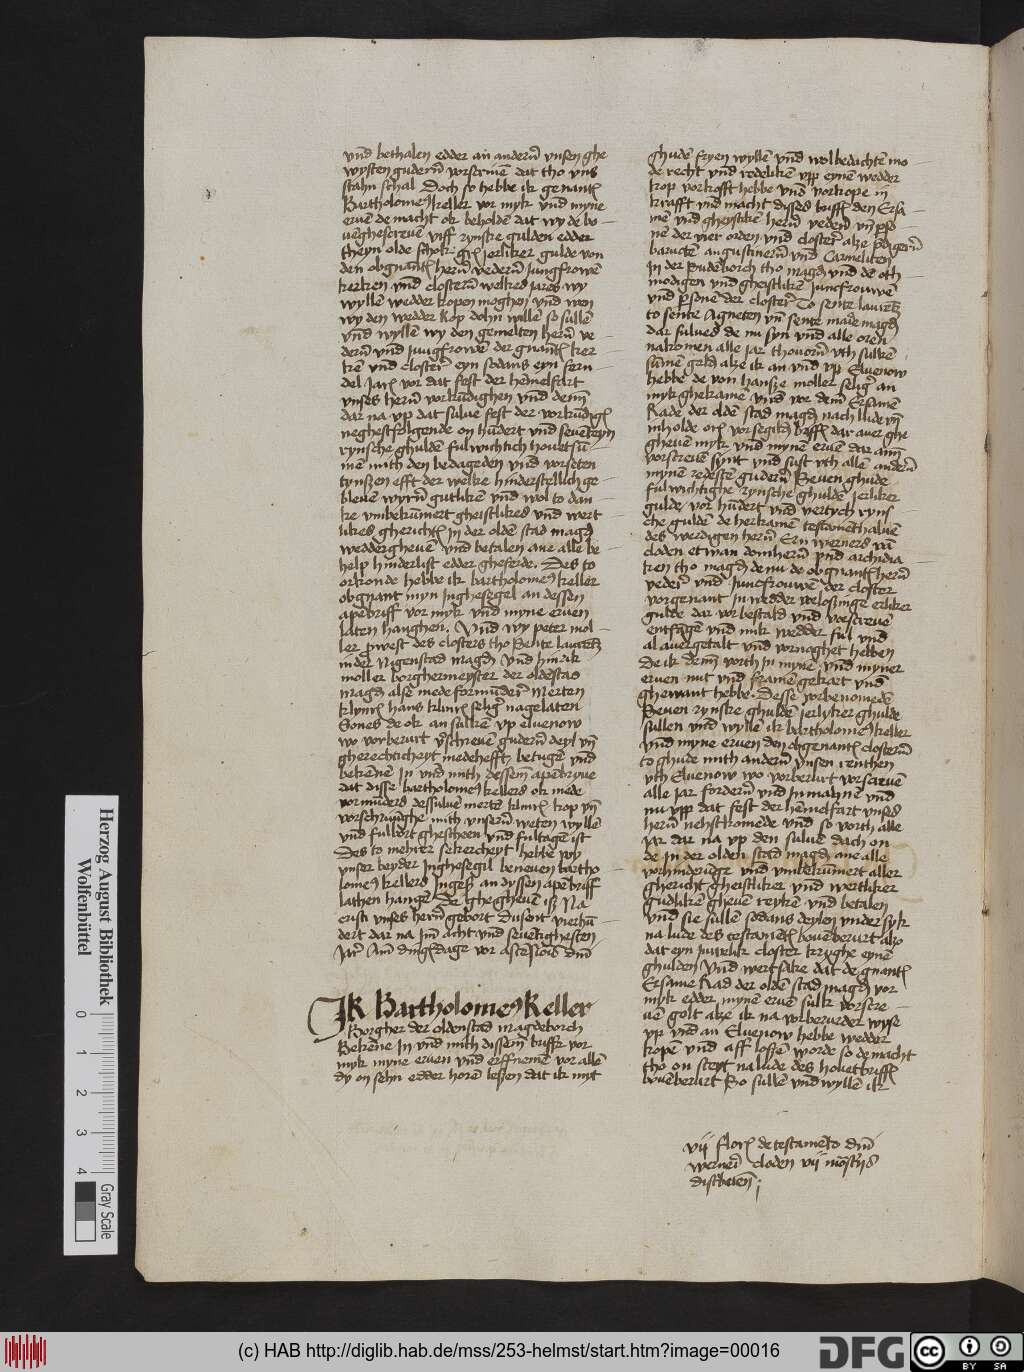 vnd bethalen edder an andern vnsen ghe
wysten gudern vorscriuen dat tho vns
stahn schal Doch so hebbe ik genant
Bartholomeus keller vor myk vnd myne
eruen de macht ok beholden dat wy de bo
uenghescreuen viff rynske gulden edder
theyn olde schok gr jerliker gulde von
den obgnanten hern vedern Jungfrowen
kerken vnd clostern welkes jares wy
wyllen wedder kopen moghen vnd wen
wy den wedder kop dohn willen so sullen
vnd wyllen wy den gemelten hern ve
dern vnd jungfrowen der gnanten ker
ken vnd closter eyn sodans eyn feren
del Jars vor dat fest der hemelfart
vnses hern vorkundighen vnd denn
dar na vp dat sulue fest der vorkundig
neghestfolgende on hundert vnd seuenteyn
rynsche ghulden fulwichtich houetsum
men mith den bedageden vnd vorseten
tynßen efft der welke hinderstellich ge
bleuen wyrn gutliken vnd wol to dan
ke vmbekumert gheistlikes vnd wert
likes gherichts in der olden stad magd
weddergheuen vnd betalen ane alle be
help hinderlist edder gheferde. Des to
orkonde hebbe ik bartholomeus keller
obgnant myn Inghesegel an dessen
apenbriff vor myk vnd myne eruen
laten hanghen. Vnd wy peter mol
ler prwest des closters tho Sente laurentz
in der Nigenstad magd Vnd hinrik
moller borghermeyster der oldestad
magd alse mede formunder Merten
klynt hans klint selig nagelaten
Sones de ok an sulken vp eluenow
wo vorberurt vorschreuen gudern deyl vn
gherechticheyt medehefft betugen vnd
bekennen In vnd mith dessem apenbryue
dat disser bartholomeus kellers ok mede
vormunders dessuluen merten klints kop vn
vorschriuinghe mith vnsern weten wyllen
vnd fulbort ghescheen vnd fultagen ist
Des to mehrer sekercheyt hebbe wy
vnser beyder Inghesegil beneuen bartho
lomeus kellers Ingeß an dyssen apenbriff
lathen hangen De gheghguen iß Na
crist vnses hern gebort Dusent vierhun
dert dar na Im acht vnd seuentighesten
Jar Am dingsdage vor ascensionis dni
Ik Bartholomeus Keller
Borgher der oldenstad magdeborch
Bekenne In vnd mith dissem briffe vor
myk myne eruen vnd erffnemen vor allen
dy on sehn edder horen leßen dat ik myt
ghuden fryen wyllen vnd wolbedachten mo
de recht vnd redeliken vpp eynen wedder
kop vorkofft hebbe vnd vorkope in
krafft vnd macht disses briffs den Ersa
men vnd gheystliken hern vedern vn perso
nen der vier orden vnd closter alze predigern
baruoten augustinern vnd Carmeliten
In der Sudenborch tho magd vnd den oth
modigen vnd gheistliken Juncfrouwen
vnd personen der closter To sente laurentz
to sente Agneten vn sente marien magd
dar sulues de nu syn vnd alle oren
nakomen alle jar thouorn vth sulken
sumen geld alze ik an vnd vp Eluenow
hebbe de von hansze moller selig an
myk ghekamen vnd vor dem Ersamen
Rade der olden stad magd nach lude vn
inholde ors vorsegilden briffs dar auer ghe
gheuen myk vnd mynen eruen dar ann
vorscreuen synt vnd sust vth allen andern
mynen redesten gudern Seuen ghude
fulwichtighe rynsche ghulden jerliker
gulde vor hundert vnd vertych ryns
che gulden de herkamen testamenthaluen
des werdigen hern Ern werners van
cloden etwan domhern vnd archidia
ken tho magd de nu de obgnanten hern
veder vnd Juncfrouwen der closter
vorgenant In wedder velosinge erliker
gulde dar vorbestald vnd vorscreuen
entfangen vnd mik wedder ful vnd
al auergetalt vnd vornoghet hebben
De ik denn vorth In myne vnd myner
eruen nut vnd framen gekart vnd
ghewant hebbe. Desse vorbenomede
Seuen rynske ghulden jerlyker ghulde
sullen vnd wyllen ik bartholomeus keller
vnd myne eruen den obgenanten clostern
to ghude mith andern vnsen renthen
vth Eluenow wo vorberurt vorscreuen
alle jar fordern vnd Inmanen vnd
nu vpp dat fest der hemelfart vnses
hern nehstkomende vnd so vorth alle
jar dar na vp den suluen dach on
de In der olden stad magd ane alle
vorhinderunge vnd vmbekumert aller
ghericht gheistliker vnd wertliker
gudliken gheuen reyken vnd betalen
vnd sie sullen sodans deylen vnder syk
na lude des testaments bouenberurt also
dat eyn juwelik closter kryghe eynen
ghulden Vnd wertsake dat de gnant
Ersame Rad der olden stad magd vor
myk edder mynen eruen sulk vorscre
uen golt alze ik na vorberurder wyse
vp vnd an Eluenow hebbe wedder
kopen vnd aff losen worde so de macht
tho on steyt na lude des houetbriffs
bouenberurt So sullen vnd wyllen ik
vij flor de testamento dni
werneri cloden vij monsterijs
distribuen
Herzog August Bibliothek
Wolfenbüttel
0 1 2 3 4
Gray Scale
(c) HAB http://diglib.hab.de/mss/253-helmst/start.htm?image=00016
DFG
cc BY SA